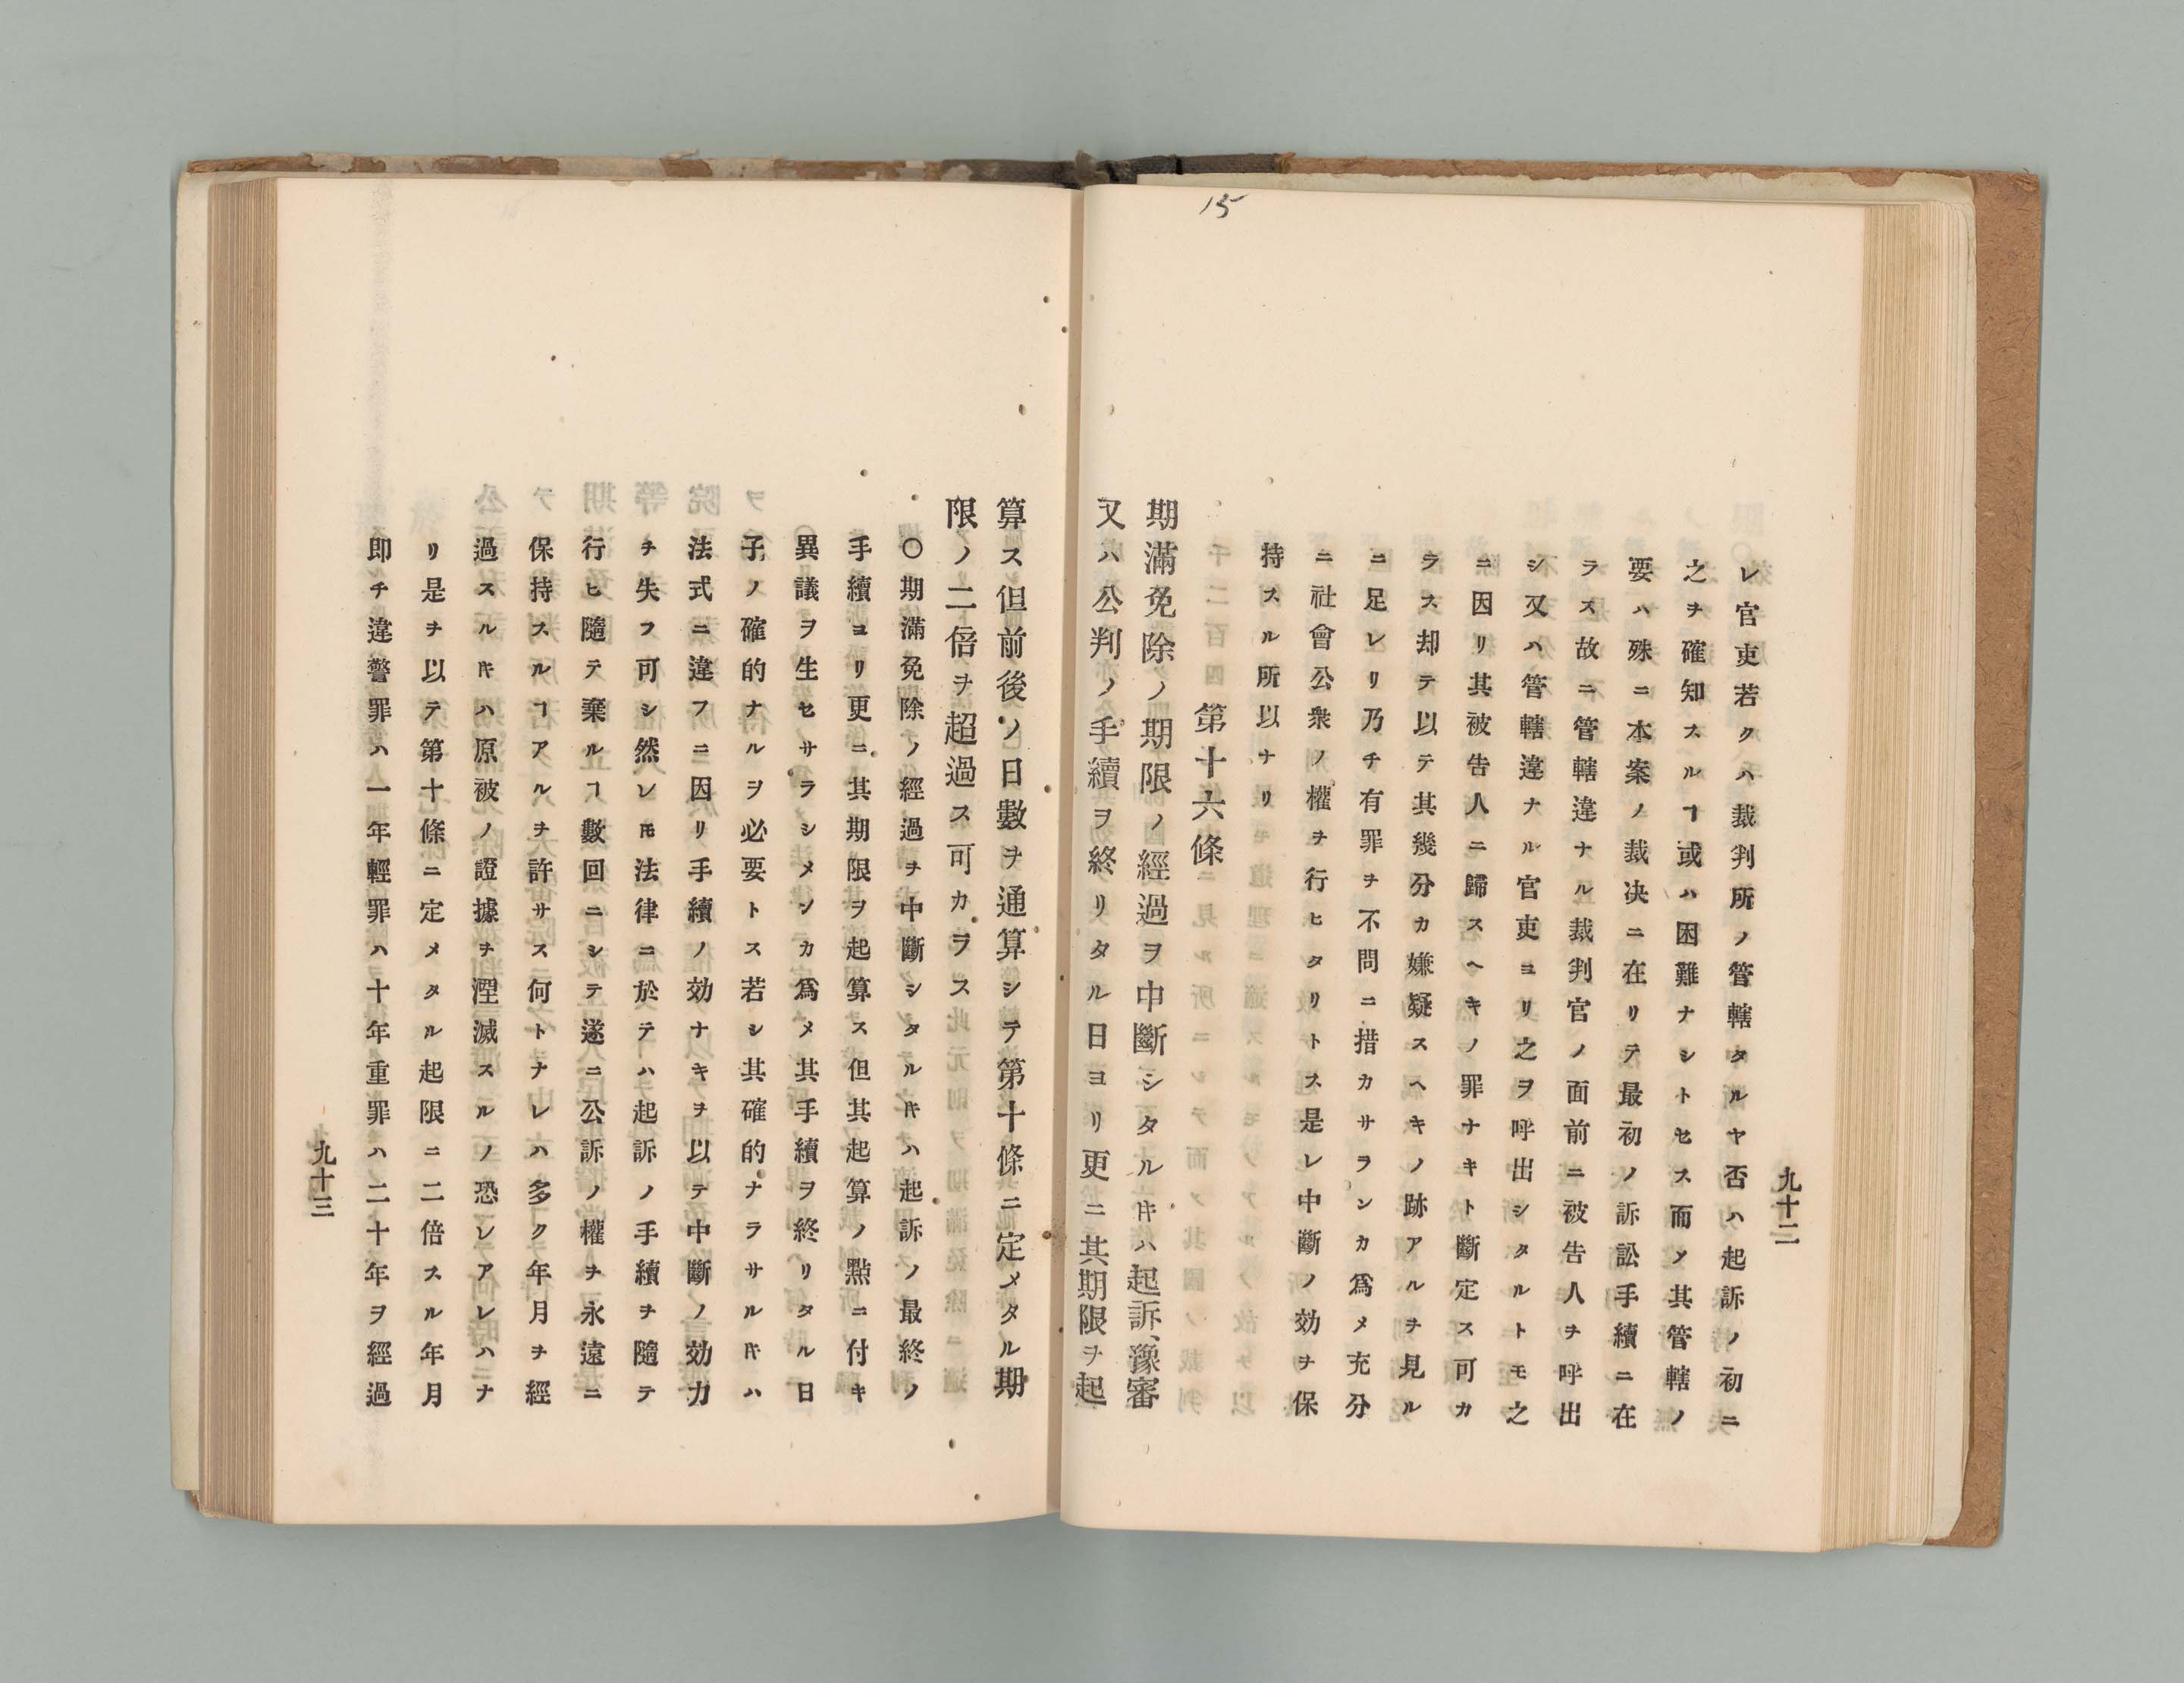 15
九十二
レ官吏若クハ裁判所ノ管轄タルヤ否ハ起訴ノ初ニ
之ヲ確知スルヿ或ハ困難ナシトセス而メ其管轄ノ
要ハ殊ニ本案ノ裁决ニ在リテ最初ノ訴訟手續ニ在
ラス故ニ管轄違ナル裁判官ノ面前ニ被告人ヲ呼出
シ又ハ管轄違ナル官吏ヨリ之ヲ呼出シタルトモ之
ニ因リ其被告人ニ歸スヘキノ罪ナキト斷定ス可カ
ラス却テ以テ其幾分カ嫌疑スヘキノ跡アルヲ見ル
ニ足レリ乃チ有罪ヲ不問ニ措カサランカ爲メ充分
ニ社會公衆ノ權ヲ行ヒタリトス是レ中斷ノ効ヲ保
持スル所以ナリ
第十六條
期滿免除ノ期限ノ經過ヲ中斷シタルㆎハ起訴、豫審
又ハ公判ノ手續ヲ終リタル日ヨリ更ニ其期限ヲ起
算ス但前後ノ日數ヲ通算シテ第十條ニ定メタル期
限ノ二倍ヲ超過ス可カラス
〇期滿免除ノ經過ヲ中斷シタルㆎハ起訴ノ最終ノ
手續ヨリ更ニ其期限ヲ起算ス但其起算ノ點ニ付キ
異議ヲ生セサラシメンカ爲メ其手續ヲ終リタル日
子ノ確的ナルヲ必要トス若シ其確的ナラサルㆎハ
法式ニ違フニ因リ手續ノ効ナキヲ以テ中斷ノ効力
ヲ失フ可シ然レ𪜈法律ニ於テハ起訴ノ手續ヲ隨テ
行ヒ隨テ棄ルヿ數回ニシテ遂ニ公訴ノ權ヲ永遠ニ
保持スルヿアルヲ許サス何トナレハ多ク年月ヲ經
過スルㆎハ原被ノ證據ヲ湮滅スルノ恐レアレハナ
リ是ヲ以テ第十條ニ定メタル起限ニ二倍スル年月
即チ違警罪ハ一年輕罪ハ十年重罪ハ二十年ヲ經過
九十三